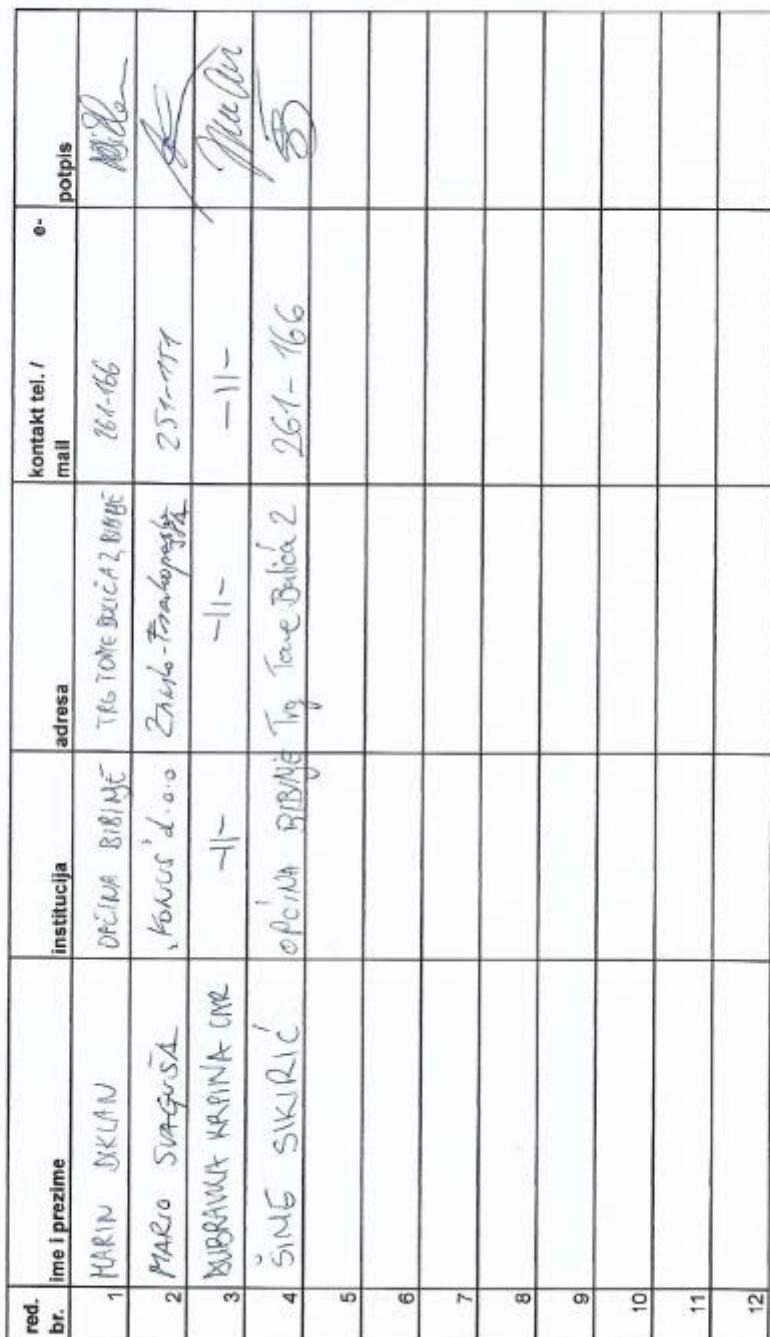 red. br. ime i prezime institucija adresa kontakt tel. / e-mail potpis
1 MARIN DIKLAN OPĆINA BIBINJE TRG TOME BULIĆA 2, BIBINJE 261-166
2 MARIO SVAGUŠA d.o.o 251-151
3 DUBRAVKA KRPINA CAR -||- -||- -||-
4 ŠIME SIKIRIĆ OPĆINA BIBINJE Trg Tome Bulića 2 261-166
5
6
7
8
9
10
11
12